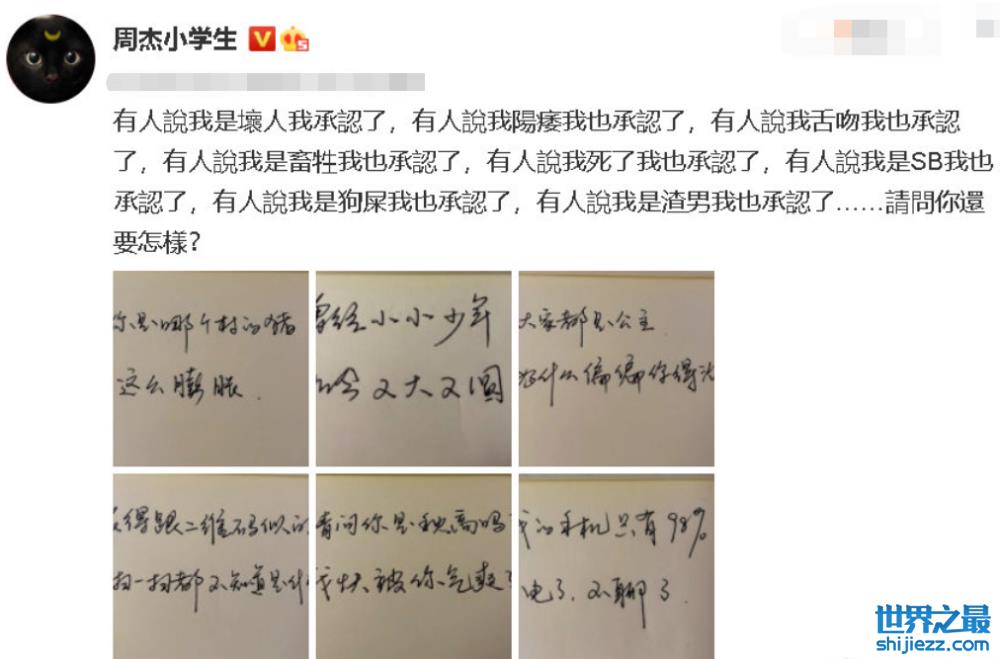 周杰小学生
有人說我是壞人我承認了，有人說我陽痿我也承認了，有人說我舌吻我也承認
了，有人說我是畜牲我也承認了，有人說我死了我也承認了，有人說我是SB我也
承認了，有人說我是狗屎我也承認了，有人說我是渣男我也承認了……請問你還
要怎樣?
你是哪个村的猪
这么膨胀.
曾经小小少年
如今又大又圓
大家都是公主
为什么偏偏你得
得跟二维码似的
扫一扫都不知道是什
请问你是秋高吗
我快被你气爽了
我的手机只有98%
电了，不聊了.
世界之最
shijiezz.com